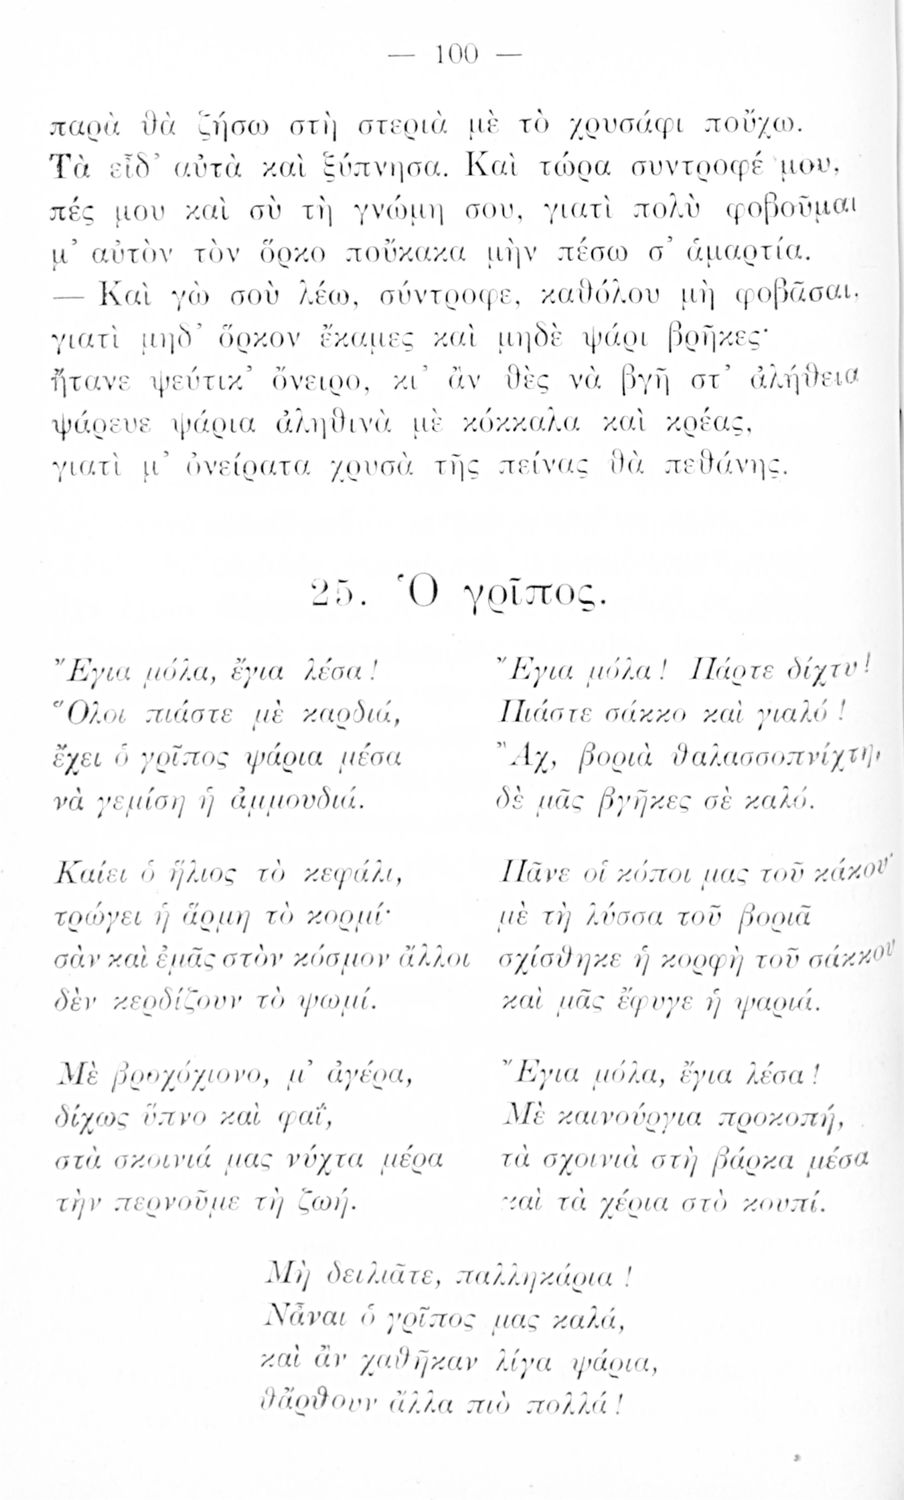 — 100 —
παρὰ θὰ ζήσω στὴ στεριὰ μὲ τὸ χρυσάφι ποὔχω.
Τὰ εἶδ᾽ αὐτὰ καὶ ξύπνησα. Καὶ τώρα συντροφέ μου,
πές μου καὶ σὺ τὴ γνώμη σου, γιατὶ πολὺ φοβοῦμαι
μ᾽ αὐτὸν τὸν ὅρκο ποὔκακα μὴν πέσω σ᾽ ἁμαρτία.
— Καὶ γὼ σοὺ λέω, σύντροφε, καθόλου μὴ φοβᾶσαι,
γιατὶ μηδ᾽ ὅρκον ἔκαμες καὶ μηδὲ ψάρι βρῆκες·
ἤτανε ψεύτικ᾽ ὄνειρο, κι᾽ ἂν θὲς νὰ βγῆ στ᾽ ἀλήθεια
ψάρευε ψάρια ἀληθινὰ μὲ κόκκαλα καὶ κρέας,
γιατὶ μ᾽ ὀνείρατα χρυσὰ τῆς πείνας θὰ πεθάνης.
25. Ὁ γρῖπος.
Ἔγια μόλα, ἔγια λέσα!
Ὅλοι πιάστε μὲ καρδιά,
ἔχει ὁ γρῖπος ψάρια μέσα
νὰ γεμίση ἡ ἀμμουδιά.
Καίει ὁ ἥλιος τὸ κεφάλι,
τρώγει ἡ ἅρμη τὸ κορμί·
σὰν καὶ ἐμᾶς στὸν κόσμον ἄλλοι
δὲν κερδίζουν τὸ ψωμί.
Μὲ βροχόχιονο, μ᾽ ἀγέρα,
δίχως ὕπνο καὶ φαΐ,
στὰ σκοινιά μας νύχτα μέρα
τὴν περνοῦμε τὴ ζωή.
Ἔγια μόλα! Πάρτε δίχτυ!
Πιάστε σάκκο καὶ γιαλό!
Ἄχ, βοριὰ θαλασσοπνίχτη,
δὲ μᾶς βγῆκες σὲ καλό.
Πᾶνε οἱ κόποι μας τοῦ κάκου
μὲ τὴ λύσσα τοῦ βοριᾶ
σχίσθηκε ἡ κορφὴ τοῦ σάκκου
καὶ μᾶς ἔφυγε ἡ ψαριά.
Ἔγια μόλα, ἔγια λέσα!
Μὲ καινούργια προκοπή,
τὰ σχοινιὰ στὴ βάρκα μέσα
καὶ τὰ χέρια στὸ κουπί.
Μὴ δειλιᾶτε, παλληκάρια!
Νἆναι ὁ γρῖπος μας καλά,
καὶ ἂν χαθῆκαν λίγα ψάρια,
θἄρθουν ἄλλα πιὸ πολλά!